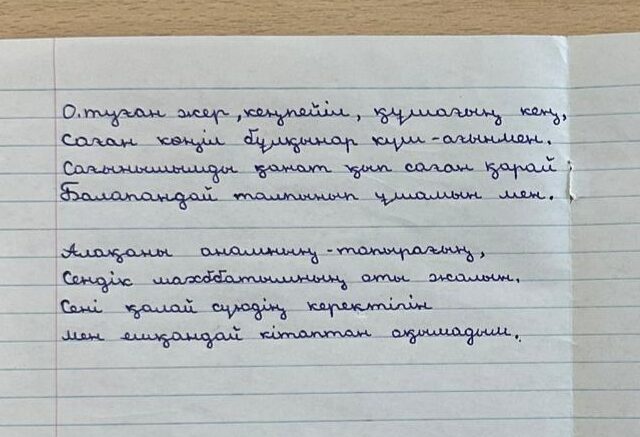 О.туған жер, кеңпейіл, құшағың кең,
Саған көңіл бұлқынар күш-ағынмен.
Сағынышымды қанат қып саған қарай
Балапандай талпынып ұшамын мен.
Алақаны анамның-топырағың,
Сендік махббатымның оты жалын.
Сені қалай сүюдің керектігін
мен ешқандай кітаптан оқымадым.